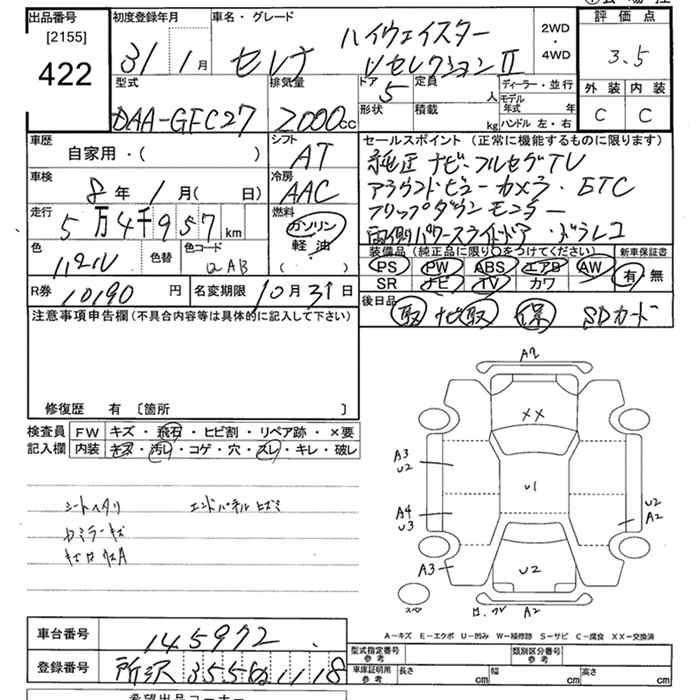 出品番号
[2155]
422
初度登録年月
31 1 月
車名・グレード
セレナ
ハイウェイスター
Vセレクション II
2WD
・
4WD
評価点
3.5
外装 内装
C C
型式
DAA-GFC27
排気量
2000cc
ドア
5
定員
人
形状
積載
kg
ディーラー・並行
モデル年式 年
ハンドル 左・右
車歴
自家用・( )
シフト
AT
車検
8年 1月 ( 日)
冷房
AAC
走行
5万4千957 km
燃料
ガソリン
軽油
( )
色
色替
色コード
QAB
R券
10190 円
名変期限
10月31日
セールスポイント (正常に機能するものに限ります)
純正 ナビ・フルセグTV
アラウンドビューカメラ・ETC
フリップダウンモニター
両側パワースライドドア・ドラレコ
装備品(純正品に限り○をつけてください)
PS PW ABS エアB AW
SR ナビ TV カワ
新車保証書
有 無
後日品
取 ナビ取 保 SDカード
注意事項申告欄 (不具合内容等は具体的に記入して下さい)
修復歴 有 〔箇所 〕
検査員記入欄
FW キズ・飛石・ヒビ割・リペア跡・×要
内装 キズ・汚レ・コゲ・穴・スレ・キレ・破レ
シートヘタリ エンドパネルヒズミ
A2
XX
A3
U2
U1
A4
U3
U2
A2
A3
U2
A2
A-キズ E-エクボ U-凹み W-補修跡 S-サビ C-腐食 XX-交換済
車台番号
145972
登録番号
所沢 355 1118
型式指定番号
参考
類別区分番号
参考
車庫証明用
参考
長さ cm
幅 cm
高さ cm
希望出品コーナー